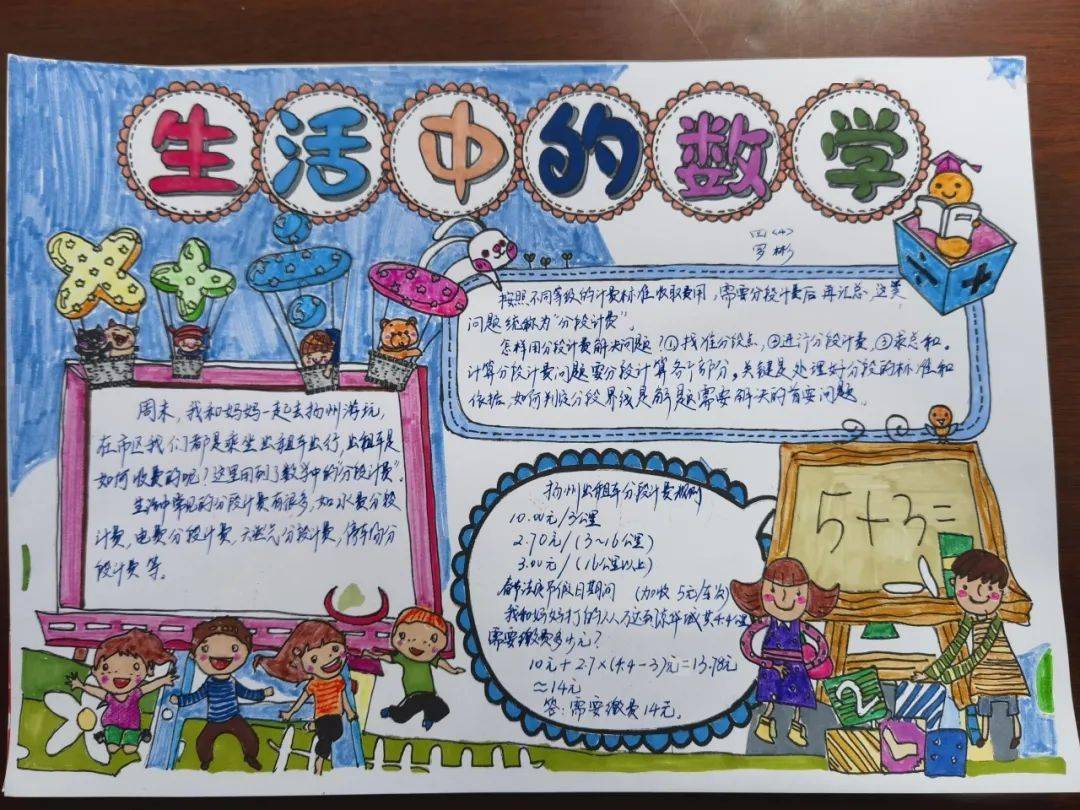 生活中的数学
四(4)
彬
按照不同等级的计费标准收取费用,需要分段计费后再汇总,这类
问题统称为"分段计费"。
怎样用分段计费解决问题?①找准分段点,②进行分段计费,③求总和。
计算分段计费问题要分段计算各个部分。关键是处理好分段的标准和
依据,如何判定分段界线是解题需要解决的首要问题。
周末,我和妈妈一起去扬州游玩,
在市区我们都是乘坐出租车出行,出租车是
如何收费的呢?这里用到了数学中的"分段计费"。
生活中常见的分段计费有很多,如水费分段
计费,电费分段计费,天然气分段计费,停车场分
段计费等。
扬州出租车分段计费规则
10.00元/3公里
2.70元/(3~16公里)
3.00元/(16公里以上)
春节法定节假日期间 (加收5元/车次)
我和妈妈打的从万达到京华城共4.4公里
需要缴费多少元?
10元+2.7×(4.4-3)元=13.78元
≈14元
答:需要缴费14元。
5+3=
÷ +
2